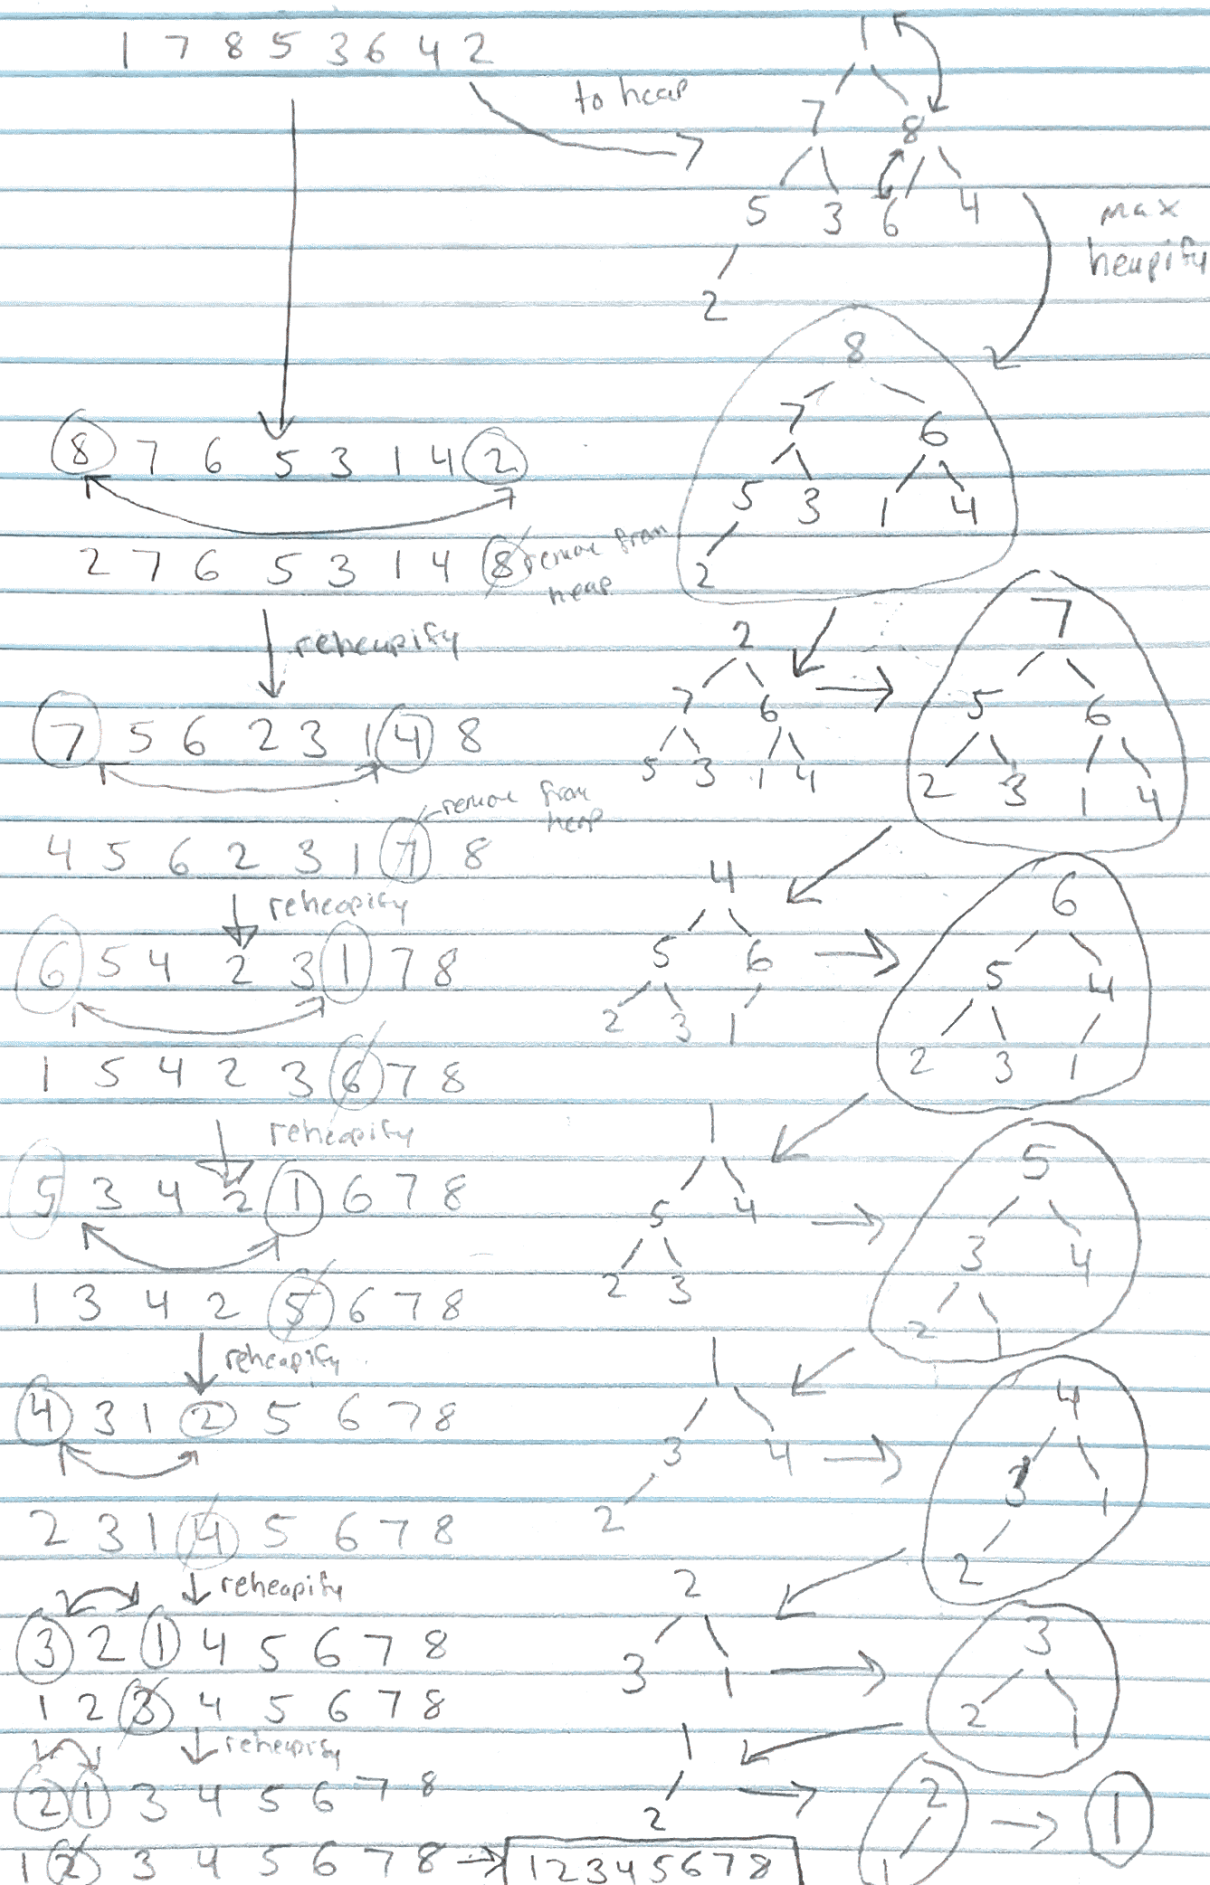 1 7 8 5 3 6 4 2
to heap
1
7 8
5 3 6 4
2
max
heapify
8
7 6
5 3 1 4
2
8 7 6 5 3 1 4 2
2 7 6 5 3 1 4 8 remove from
heap
reheapify
2
7 6
5 3 1 4
7
5 6
2 3 1 4
7 5 6 2 3 1 4 8
remove from
heap
4 5 6 2 3 1 7 8
reheapify
4
5 6
2 3 1
6
5 4
2 3 1
6 5 4 2 3 1 7 8
1 5 4 2 3 6 7 8
reheapify
1
5 4
2 3
5
3 4
2 1
5 3 4 2 1 6 7 8
1 3 4 2 5 6 7 8
reheapify
1
3 4
2
4
3 1
2
4 3 1 2 5 6 7 8
2 3 1 4 5 6 7 8
reheapify
2
3 1
3
2 1
3 2 1 4 5 6 7 8
1 2 3 4 5 6 7 8
reheapify
1
2
2
1
1
2 1 3 4 5 6 7 8
1 2 3 4 5 6 7 8 → 1 2 3 4 5 6 7 8